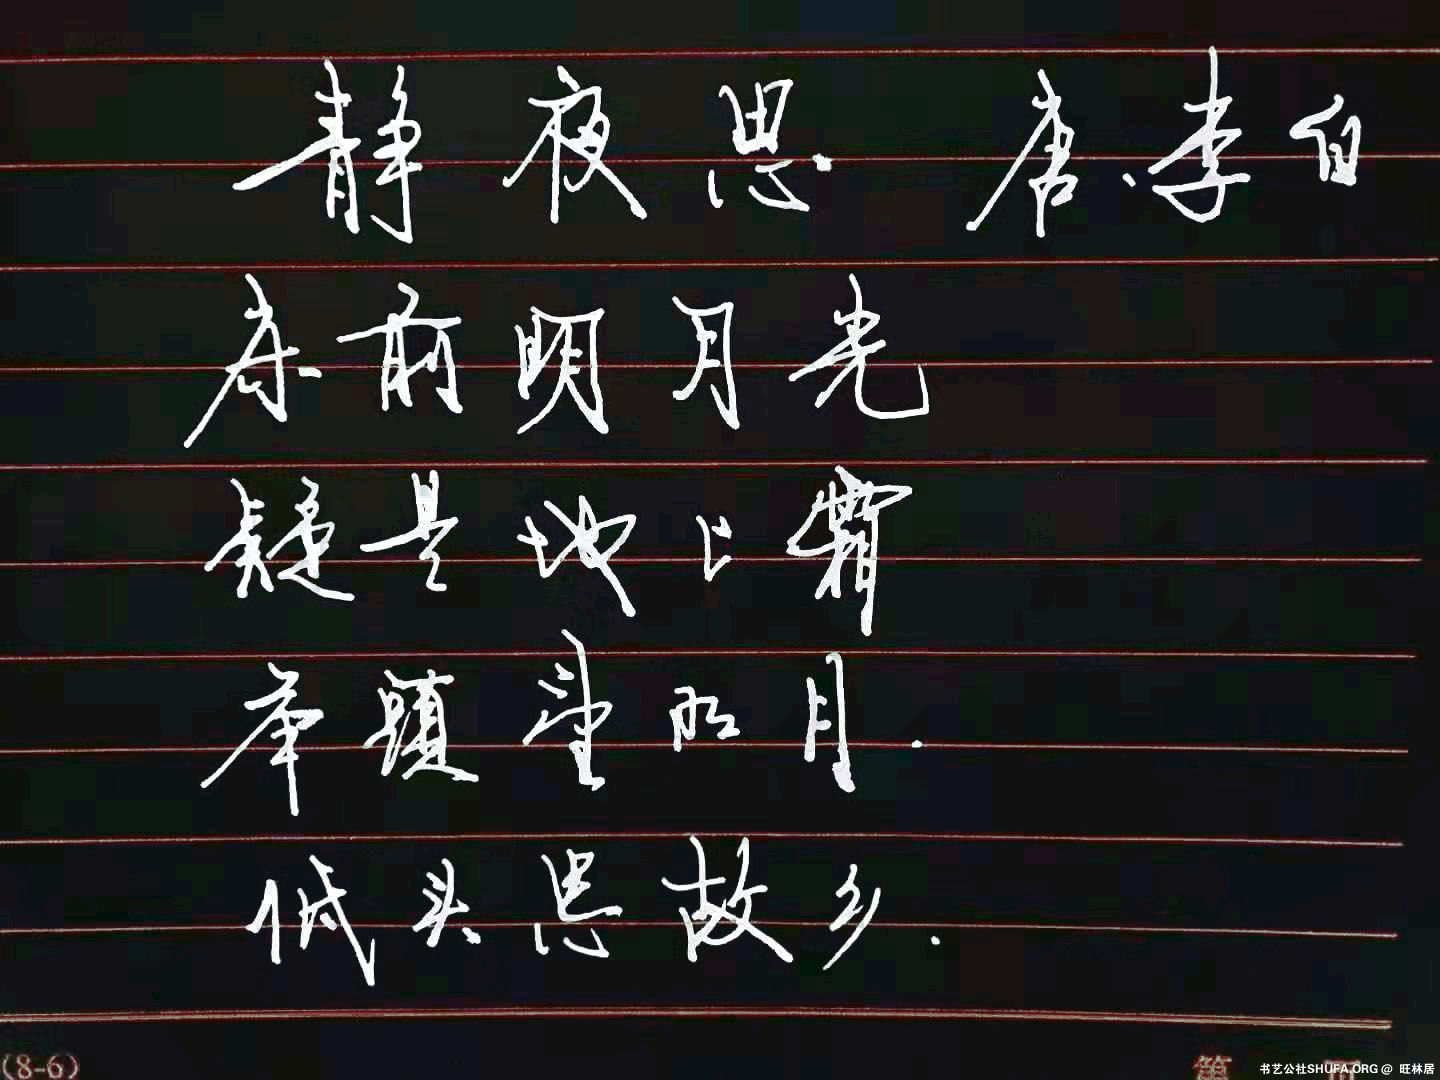 静夜思 唐·李白
床前明月光
疑是地上霜
举頭望明月.
低头思故乡.
(8-6)
第 页
书艺公社SHUFA.ORG @ 旺林居